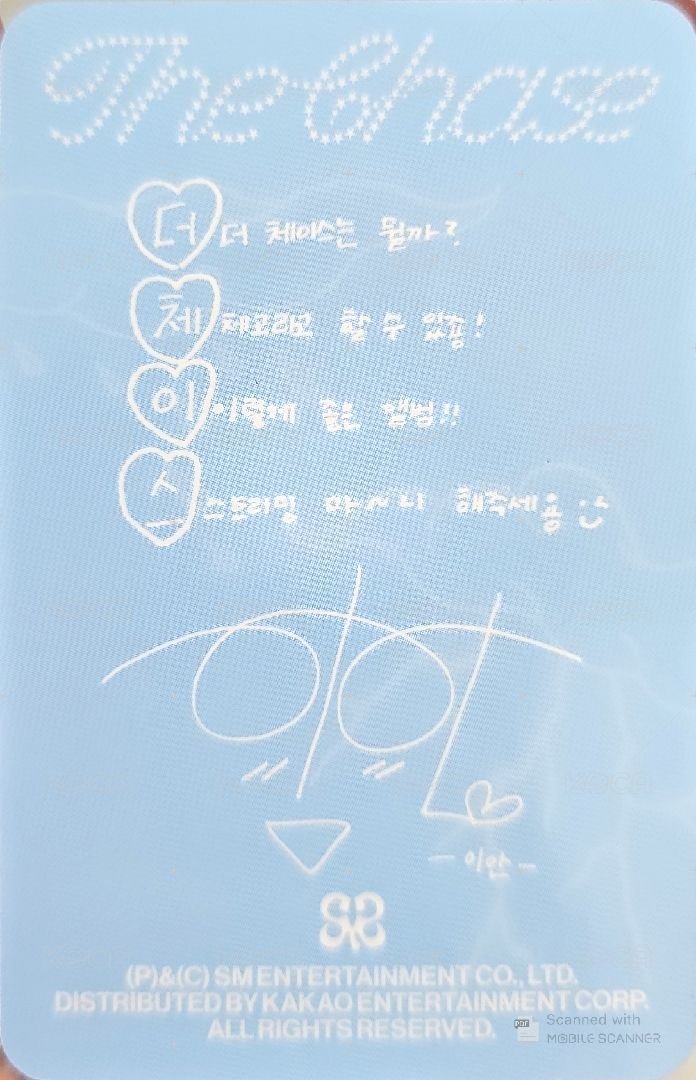 The Chase
더 더 체이스는 뭘까?
체 체크라고 할 수 있죵!
이 이렇게 좋은 앨범!!
스 스트리밍 마~니 해주세용 :)
- 이안 -
(P)&(C) SM ENTERTAINMENT CO., LTD.
DISTRIBUTED BY KAKAO ENTERTAINMENT CORP.
ALL RIGHTS RESERVED.
Scanned with
MOBILE SCANNER